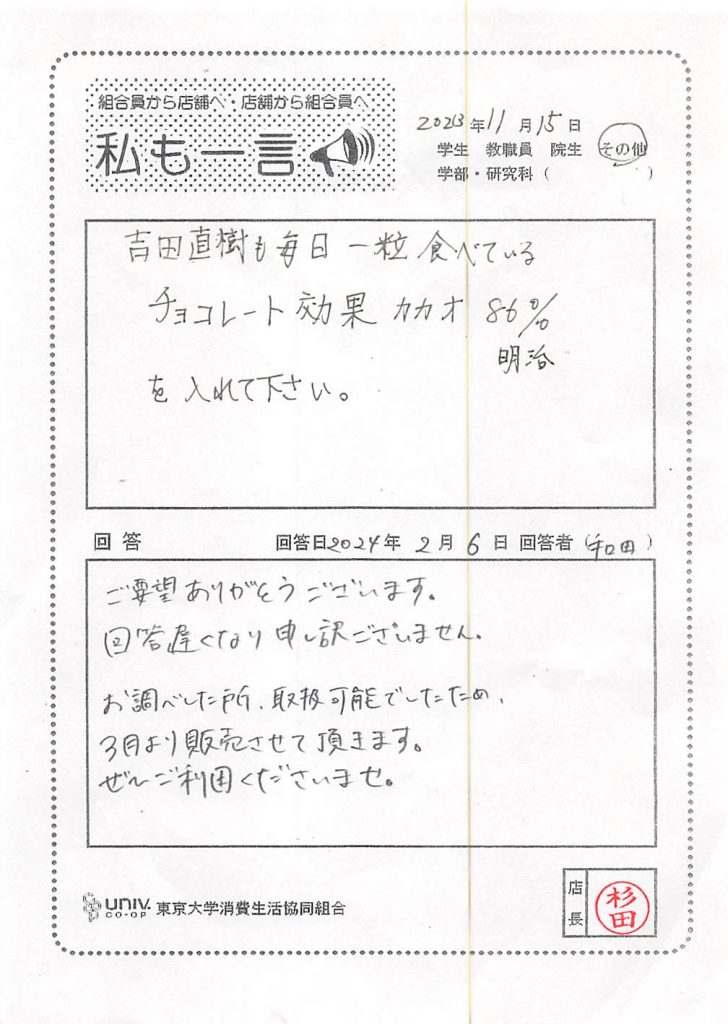 組合員から店舗へ・店舗から組合員へ
私も一言
2023年11月15日
学生 教職員 院生 その他
学部・研究科( )
吉田直樹も毎日一粒食べている
チョコレート効果 カカオ 86%
明治
を入れて下さい。
回答 回答日2024年2月6日 回答者(和田)
ご要望ありがとうございます。
回答遅くなり申し訳ございません。
お調べした所、取扱可能でしたため、
3月より販売させて頂きます。
ぜひご利用くださいませ。
UNIV. CO-OP 東京大学消費生活協同組合
店長 杉田